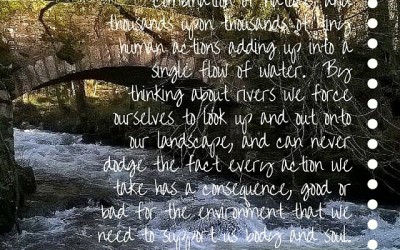 combination of nature, and
thousands upon thousands of tiny
human actions adding up into a
single flow of water. By
thinking about rivers we force
ourselves to look up and out onto
our landscape, and can never
dodge the fact every action we
take has a consequence, good or
bad for the environment that we
need to support us body and soul.